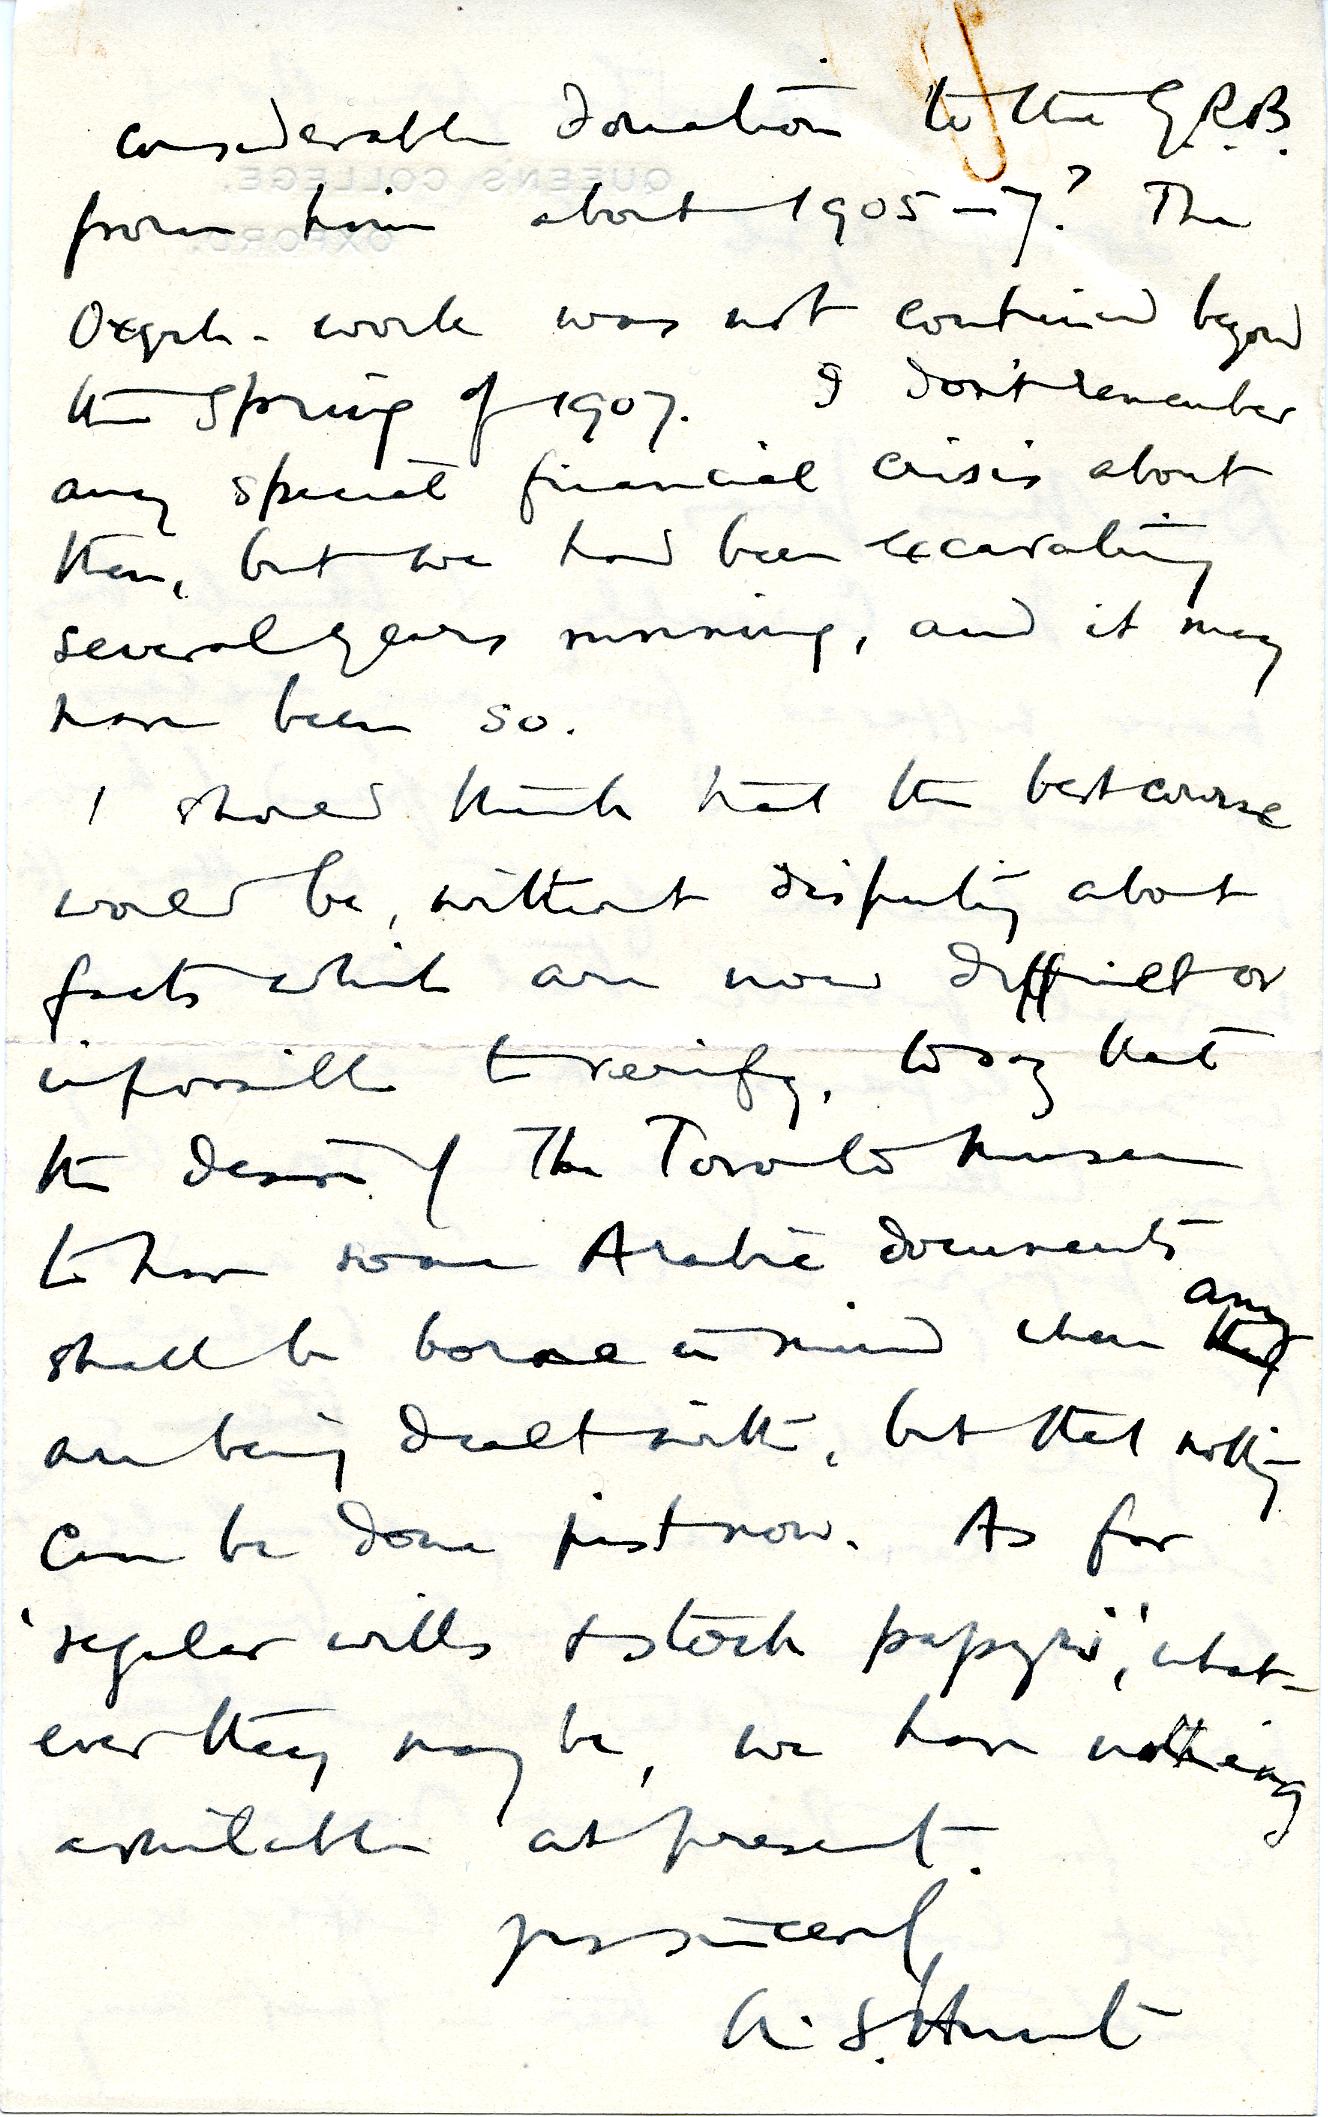 considerable donation to the G.R.B.
from him about 1905–7? The
Oxyrh. work was not continued beyond
the spring of 1907. I don't remember
any special financial crisis about
then, but we had been excavating
several years running, and it may
have been so.
I should think that the best course
would be, without disputing about
facts which are now difficult or
impossible to verify, to say that
the desire of The Toronto Museum
to have some Arabic documents
shall be borne in mind when any
are being dealt with, but that nothing
can be done just now. As for
'regular wills & stock papyri', what-
ever they may be, we have nothing
available at present.
yrs sincerely
A. S. Hunt
QUEEN'S COLLEGE.
OXFORD.